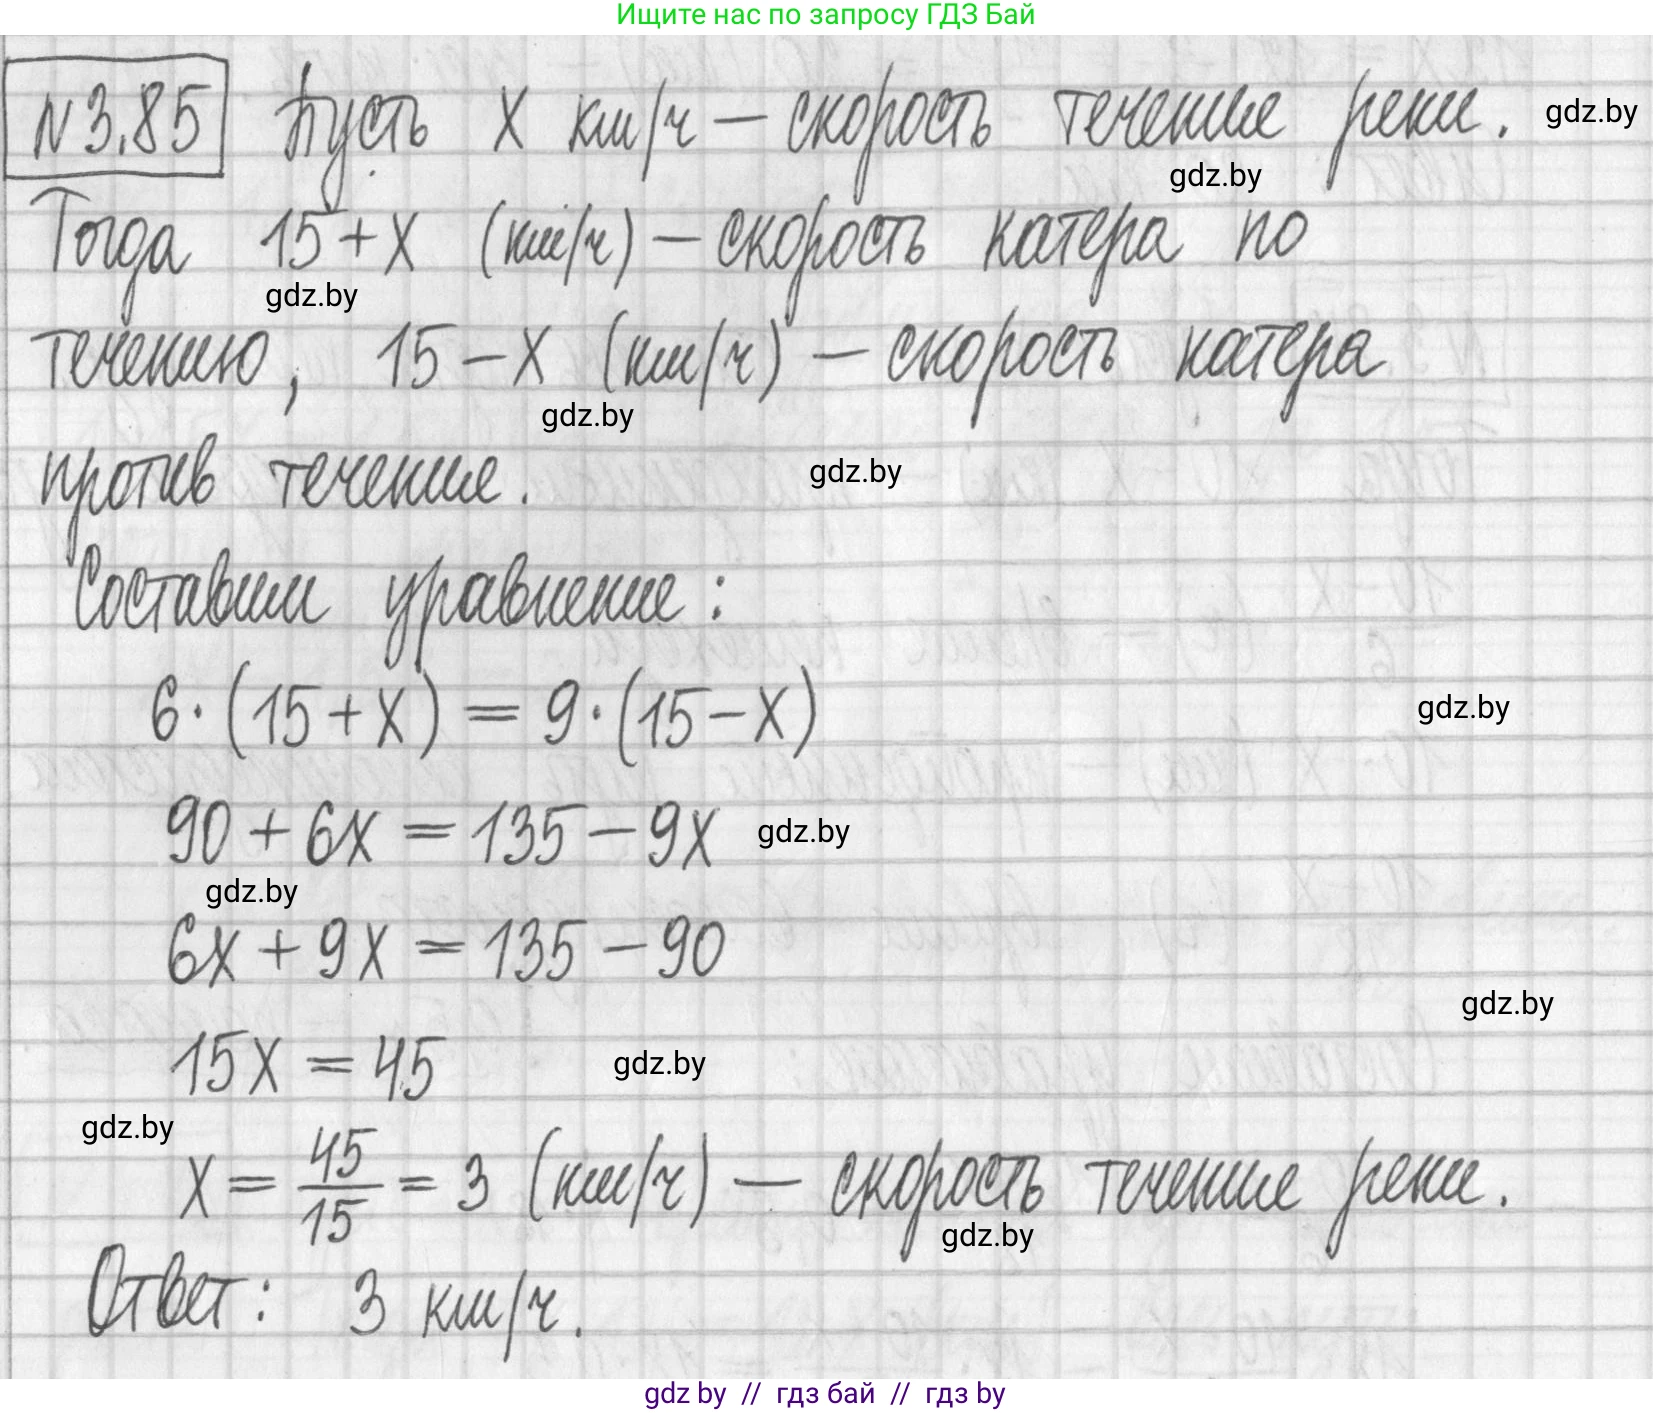 Ищите нас по запросу ГДЗ Бай
N3.85 Пусть x км/ч — скорость течения реки. gdz.by
gdz.by
Тогда 15+x (км/ч) — скорость катера по
gdz.by
течению, 15-x (км/ч) — скорость катера
gdz.by
против течения. gdz.by
Составим уравнение:
6·(15+x)=9·(15-x) gdz.by
90+6x=135-9x gdz.by
gdz.by
6x+9x=135-90
gdz.by
15x=45 gdz.by
gdz.by
x=45/15=3 (км/ч) — скорость течения реки.
gdz.by
Ответ: 3 км/ч.
gdz by // гдз бай // гдз by